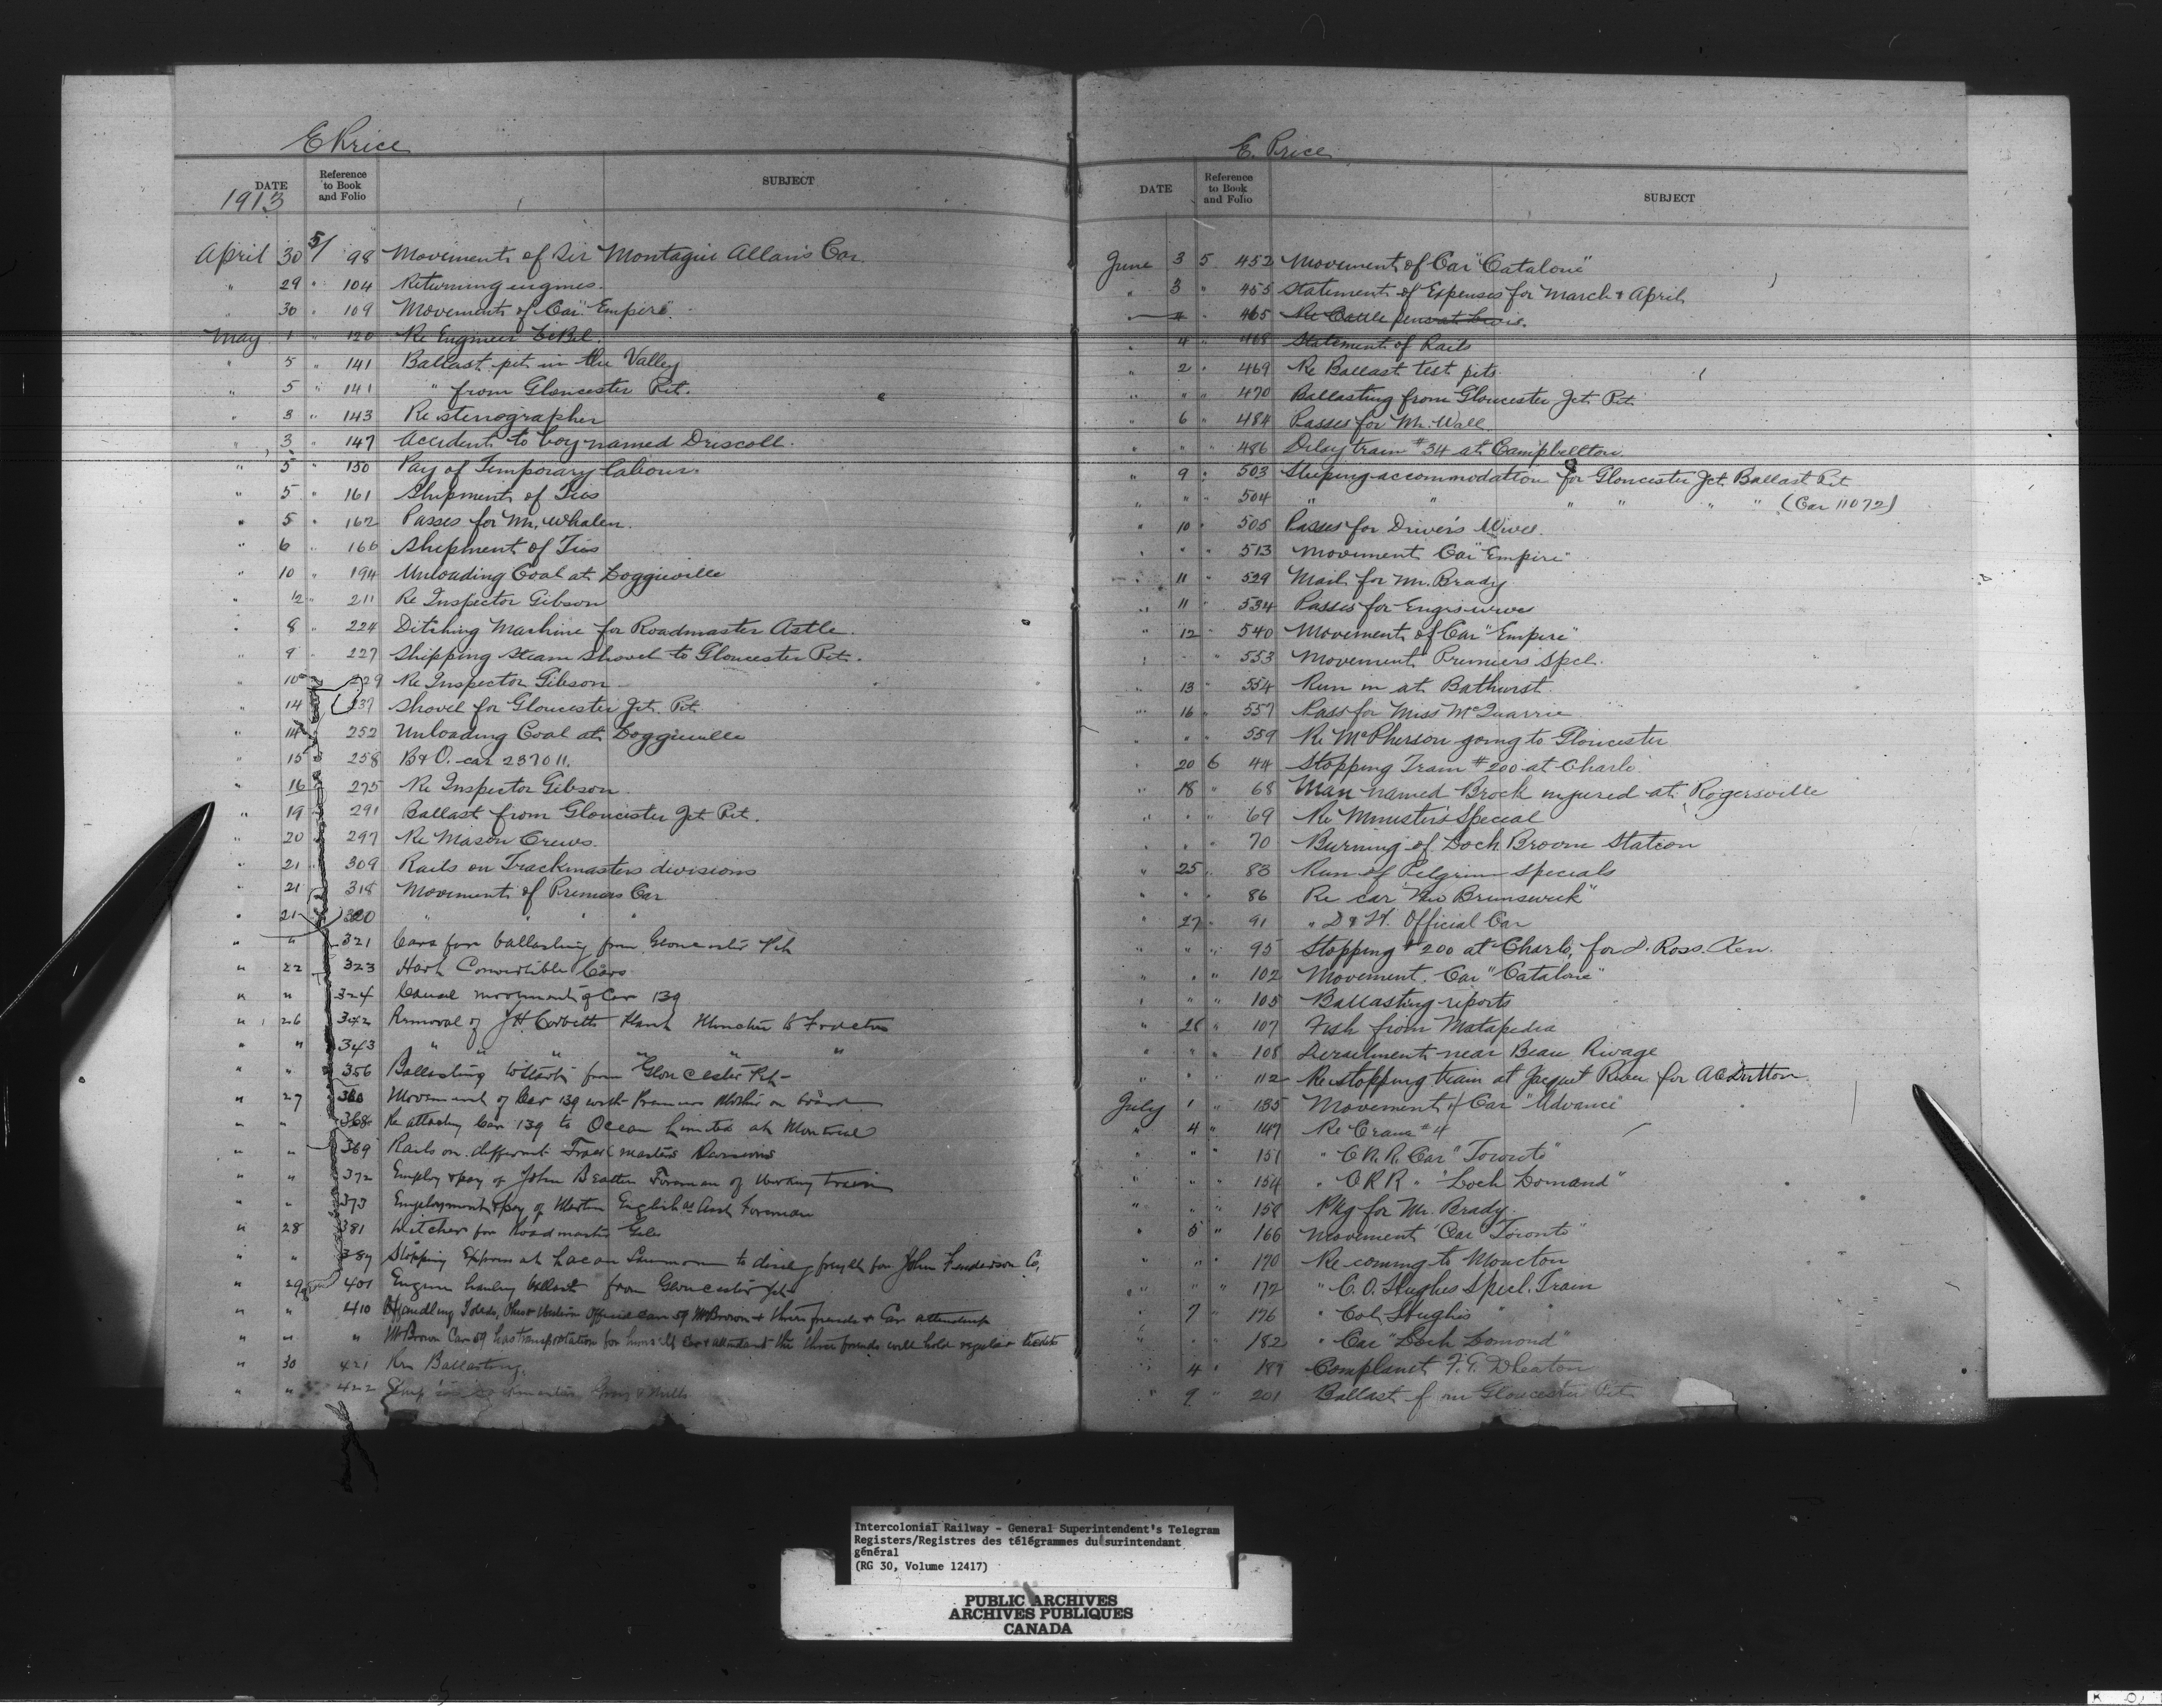 E Price
DATE Reference to Book and Folio SUBJECT
1913
April 30 5/ 98 Movements of Sir Montague Allan's Car
" 29 " 104 Returning engines.
" 30 " 109 Movements of Car "Empire".
May 1 " 120 Re Engineer LeBel.
" 5 " 141 Ballast pit in the Valley
" 5 " 141 " from Gloucester Pit.
" 3 " 143 Re stenographer
" 3 " 147 Accident to boy named Driscoll.
" 5 " 150 Pay of Temporary labour.
" 5 " 161 Shipment of Ties
" 5 " 162 Passes for Mr. Whalen.
" 6 " 166 Shipment of Ties
" 10 " 194 Unloading Coal at Loggieville
" 12 " 211 Re Inspector Gibson
" 8 " 224 Ditching Machine for Roadmaster Astle.
" 9 " 227 Shipping Steam Shovel to Gloucester Pit.
" 10 229 Re Inspector Gibson
" 14 237 Shovel for Gloucester Jct. Pit.
" 14 252 Unloading Coal at Loggieville
" 15 258 B & O. car 237011.
" 16 275 Re Inspector Gibson.
" 19 291 Ballast from Gloucester Jct Pit.
" 20 297 Re Mason Crews.
" 21 309 Rails on Trackmasters divisions
" 21 318 Movement of Premiers Car
" 21 320 " " "
" " 321 Cars for ballasting from Gloucester Pit
" 22 323 Hart Convertible Cars
" " 324 Cancel movement of Car 139
" 26 342 Removal of J H Corbetts Plant to
" " 343 " " " " " "
" " 356 Ballasting to start from Gloucester Pit
" 27 360 Movement of Car 139 with Premier on board
" " 368 Re attaching Car 139 to Ocean Limited at Montreal
" " 369 Rails on different Track masters Divisions
" " 372 Employ & pay of John Beattie Foreman of Working train
" " 373 Employment & pay of Martin English as Asst Foreman
" 28 381 for Roadmaster
" " 387 Stopping Express at Lacan to freight for John Fenderson Co,
" 29 401 Engine hauling ballast from Gloucester Jct
" " 410 Handling Toledo, Ohio & Western Official car 59 Mr Brown & three friends & Car attendant
" " " Mr Brown Car 59 has transportation for himself Car & attendant the three friends will hold regular tickets
" 30 421 Re Ballasting.
" " 422
E. Price
DATE Reference to Book and Folio SUBJECT
June 3 5 452 Movement of Car "Catalone"
" 3 " 455 Statement of Expenses for March & April
" 4 " 465 Re Cattle pens at Levis.
" 4 " 468 Statement of Rails
" 2 " 469 Re Ballast test pits.
" " " 470 Ballasting from Gloucester Jct. Pit
" 6 " 484 Passes for Mr. Wall.
" " " 486 Delay train #34 at Campbellton.
" 9 " 503 Sleeping accommodation for Gloucester Jct Ballast Pit
" " " 504 " " " " " " (Car 11072)
" 10 " 505 Passes for Driver's Wives.
" " " 513 Movement Car "Empire"
" 11 " 529 Mail for Mr. Brady
" 11 " 534 Passes for Engrs wives
" 12 " 540 Movement of Car "Empire"
" " " 553 Movement Premiers Spcl.
" 13 " 554 Run in at Bathurst
" 16 " 557 Pass for Miss McQuarrie
" " " 559 Re McPherson going to Gloucester
" 20 6 44 Stopping Train #200 at Charlo
" 18 " 68 Man named Brock injured at Rogersville
" " " 69 Re Minister's Special
" " " 70 Burning of Loch Broom Station
" 25 " 83 Run of Pilgrim specials
" " " 86 Re car "New Brunswick"
" 27 " 91 " D & H. Official Car
" " " 95 Stopping #200 at Charlo, for D. Ross. Ken.
" " " 102 Movement. Car "Catalone"
" " " 105 Ballasting reports
" 28 " 107 Fish from Matapedia
" " " 108 Derailment near Beau Rivage
" " " 112 Re stopping train at Jacquet River for A C Dutton
July 1 " 135 Movement of Car "Advance"
" 4 " 147 Re Crane #4
" " " 151 " C.N.R. Car "Toronto"
" " " 154 " C R R " "Loch Lomand"
" " " 158 Pkg for Mr. Brady.
" 5 " 166 Movement Car Toronto"
" " " 170 Re coming to Moncton
" " " 172 " C. O. Hughes Specl. Train
" 7 " 176 " Col. Hughes " "
" " " 182 " Car "Loch Lomond"
" 4 " 189 Complaint F. G. Wheaton
" 9 " 201 Ballast from Gloucester Pit
Intercolonial Railway - General Superintendent's Telegram
Registers/Registres des télégrammes du surintendant
général
(RG 30, Volume 12417)
PUBLIC ARCHIVES
ARCHIVES PUBLIQUES
CANADA